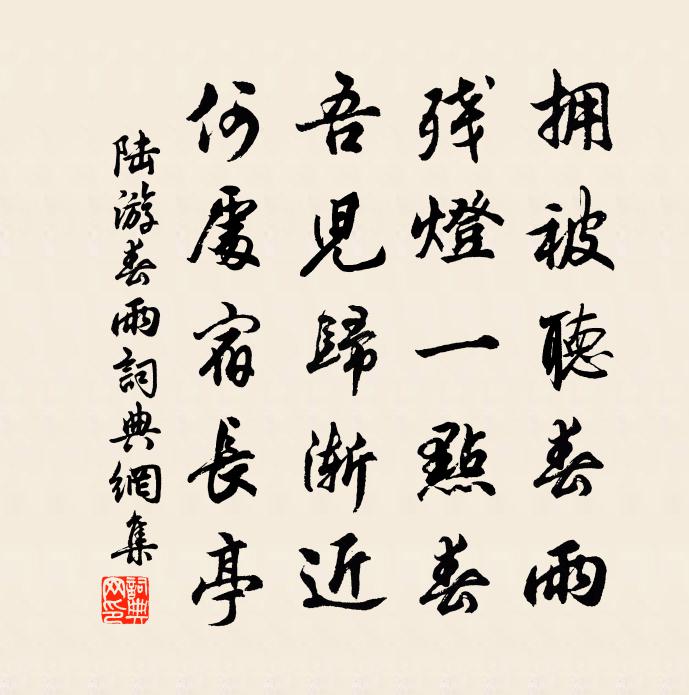 拥被聴春雨
残燈一點春
吾児歸漸近
何處宿長亭
陸游春雨詞典網集
詞典
网印